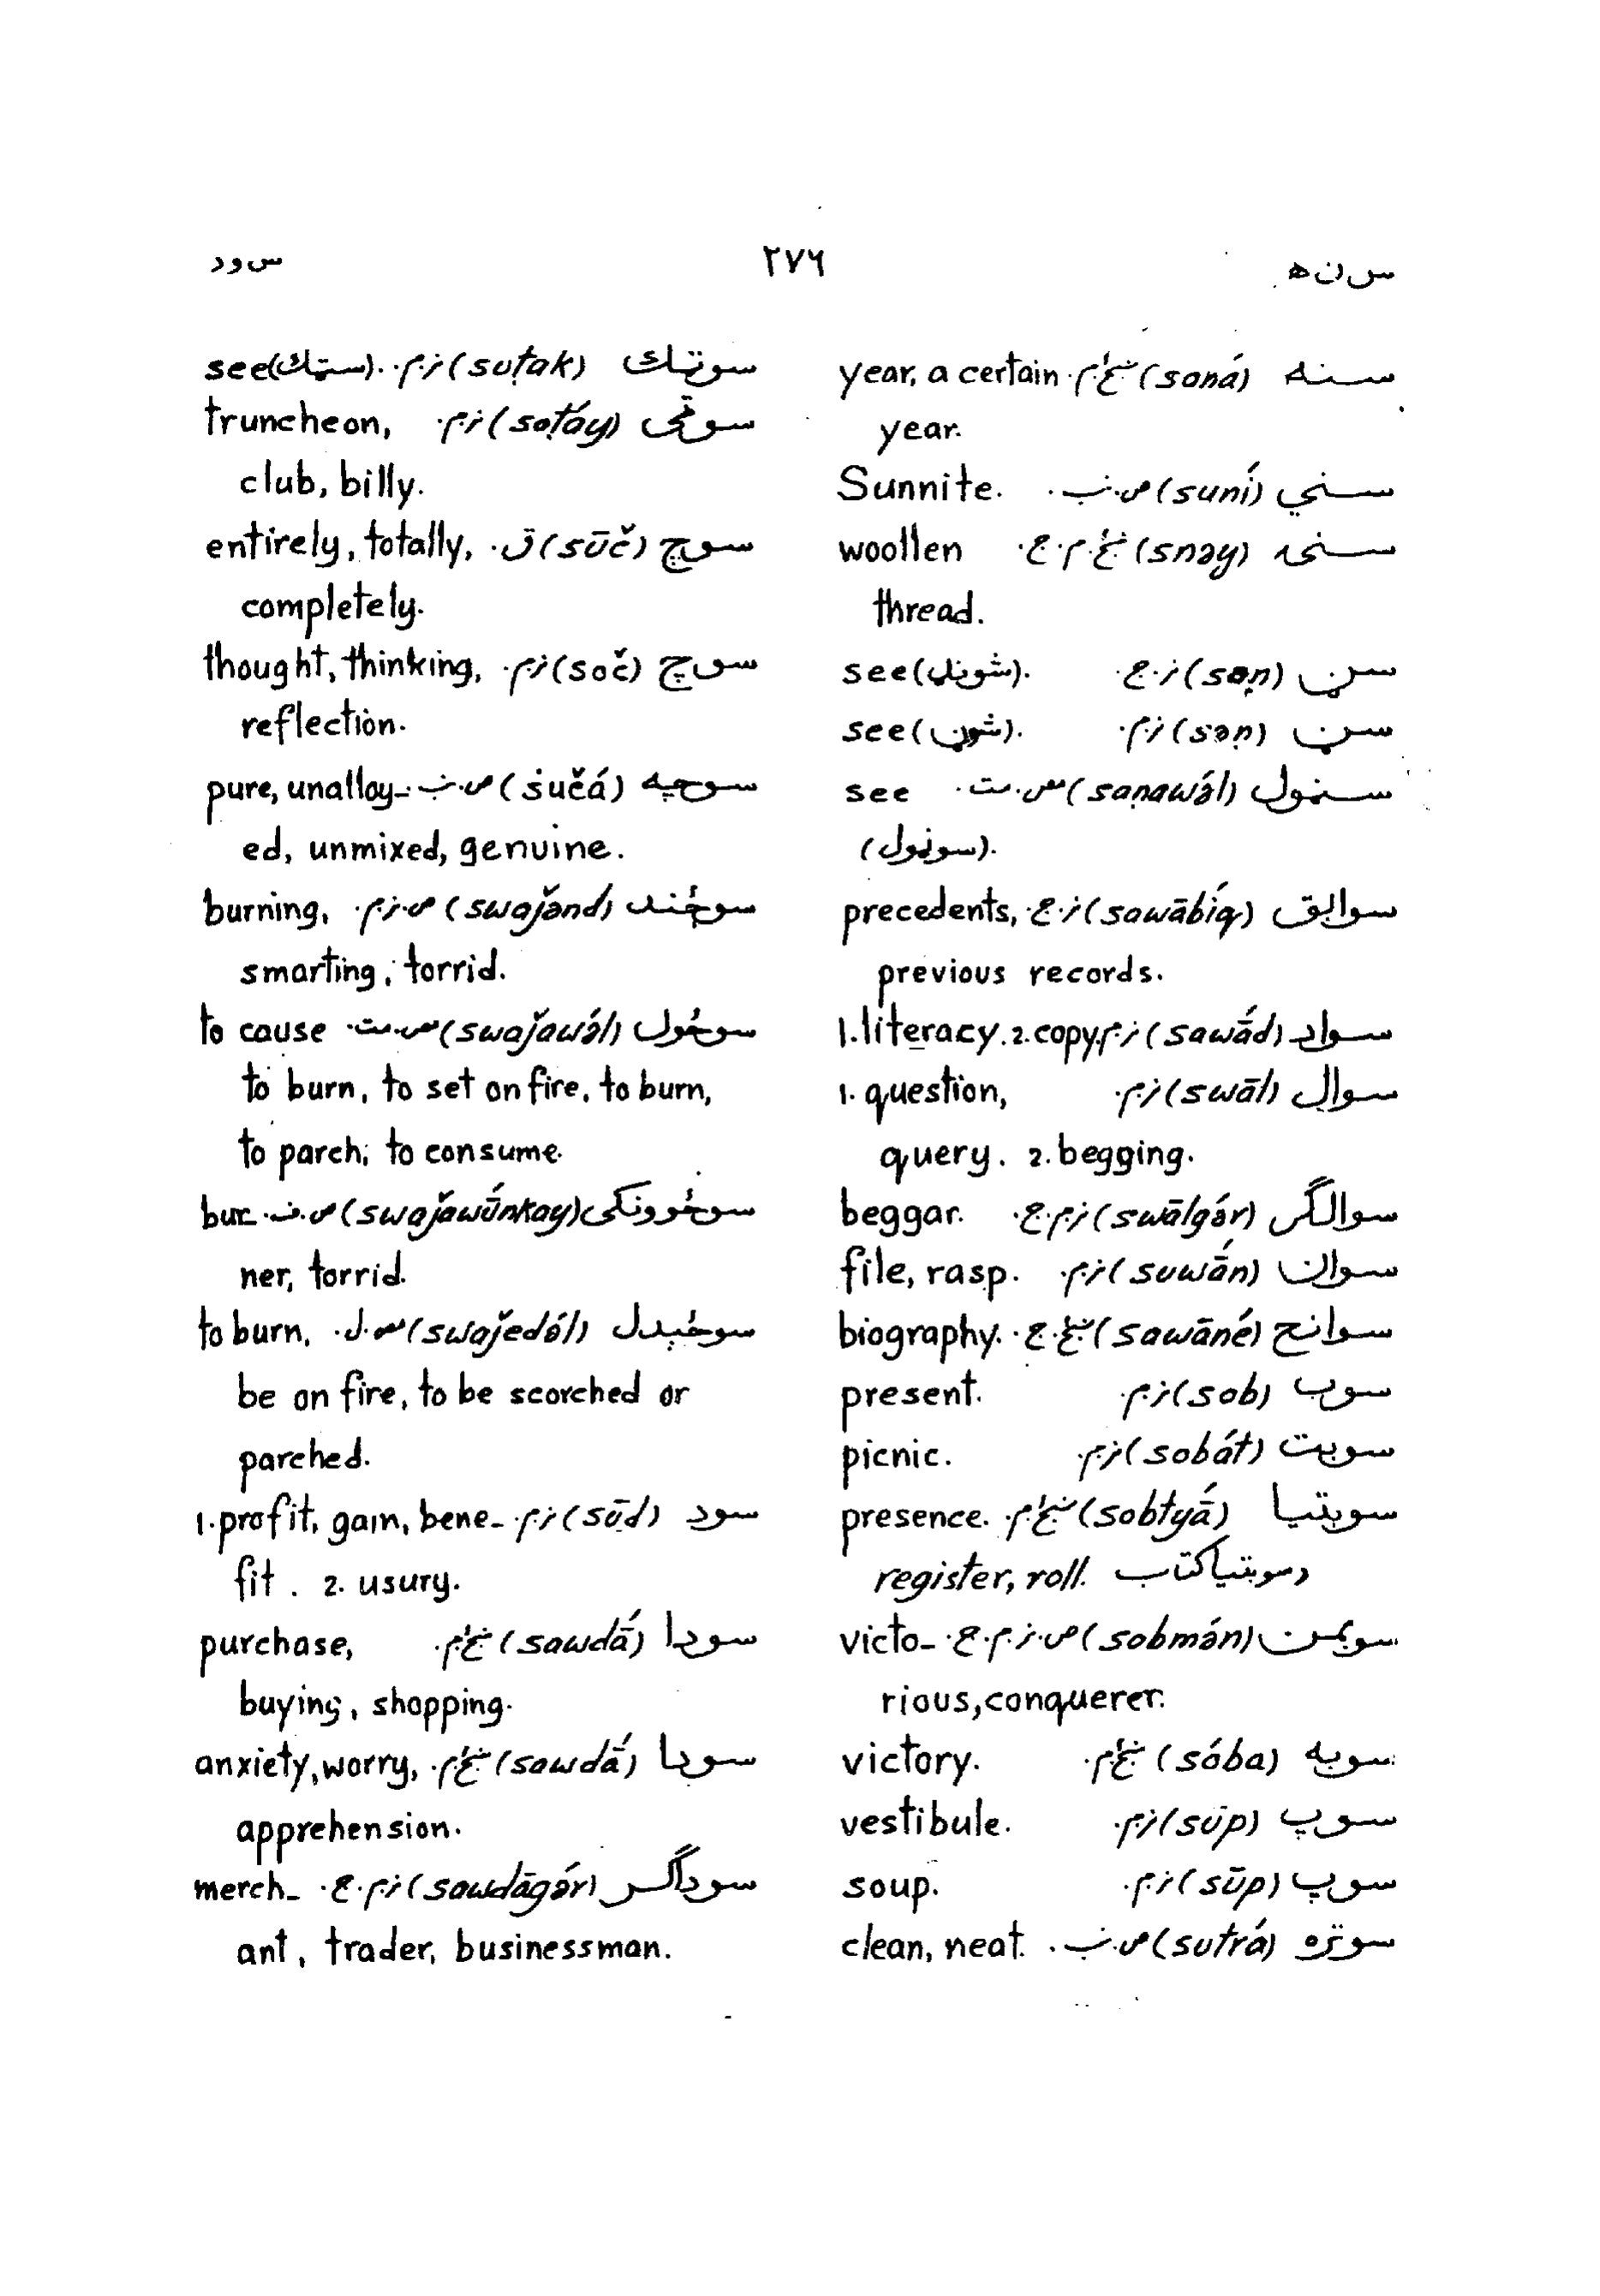 س ن ه ۲۷۶ س و د
سنه (saná) ښځ م. year, a certain
year.
سني (suní) ص.ن. Sunnite.
سنۍ (snəy) ښځ م.ج. woollen
thread.
سڼ (səṇ) ن.ج. see (شوڼل).
سڼ (səṇ) ن م. see (شوڼ).
سڼول (saṇawə́l) مص.مت. see
(سوڼول).
سوابق (sawābíq) ن.ج. precedents,
previous records.
سواد (sawā́d) ن م. 1. literacy. 2. copy.
سوال (swāl) ن م. 1. question,
query. 2. begging.
سوالګر (swālgár) ن م.ج. beggar.
سوان (suwā́n) ن م. file, rasp.
سوانح (sawāné) ښځ.ج. biography.
سوب (sob) ن م. present.
سوبت (sobát) ن م. picnic.
سوبتيا (sobtyā́) ښځ م. presence.
د سوبتيا کتاب register, roll.
سوبمن (sobmán) ص.ن م.ج. victo-
rious, conquerer.
سوبه (sóba) ښځ م. victory.
سوپ (súp) ن م. vestibule.
سوپ (sūp) ن م. soup.
سوتره (sutrá) ص.ن. clean, neat.
سوټك (suṭak) ن م. see (سټك).
سوټی (soṭáy) ن م. truncheon,
club, billy.
سوچ (sūč) ق. entirely, totally,
completely.
سوچ (soč) ن م. thought, thinking,
reflection.
سوچه (sučá) ص.ن. pure, unalloy-
ed, unmixed, genuine.
سوځند (swaǰánd) ص.ن م. burning,
smarting, torrid.
سوځول (swaǰawə́l) مص.مت. to cause
to burn, to set on fire, to burn,
to parch; to consume.
سوځوونکی (swaǰawū́nkay) ص.ف. bur-
ner, torrid.
سوځېدل (swaǰedə́l) مص.ل. to burn,
be on fire, to be scorched or
parched.
سود (sūd) ن م. 1. profit, gain, bene-
fit. 2. usury.
سودا (sawdā́) ښځ م. purchase,
buying, shopping.
سودا (sawdā́) ښځ م. anxiety, worry,
apprehension.
سوداګر (sawdāgár) ن م.ج. merch-
ant, trader, businessman.